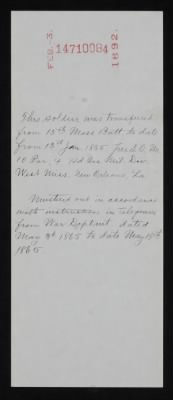 FEB. 3. 14710084 1892.
This soldier was transferred
from 15th Mass Batt to date
from 13th Jan. 1865 Par. O. No
10 Par. 4 Hd Qrs Mil. Div.
West Miss. New Orleans, La
Mustered out in accordance
with instructions in telegram
from War Deptment dated
May 8th 1865 to date May 15th
1865.